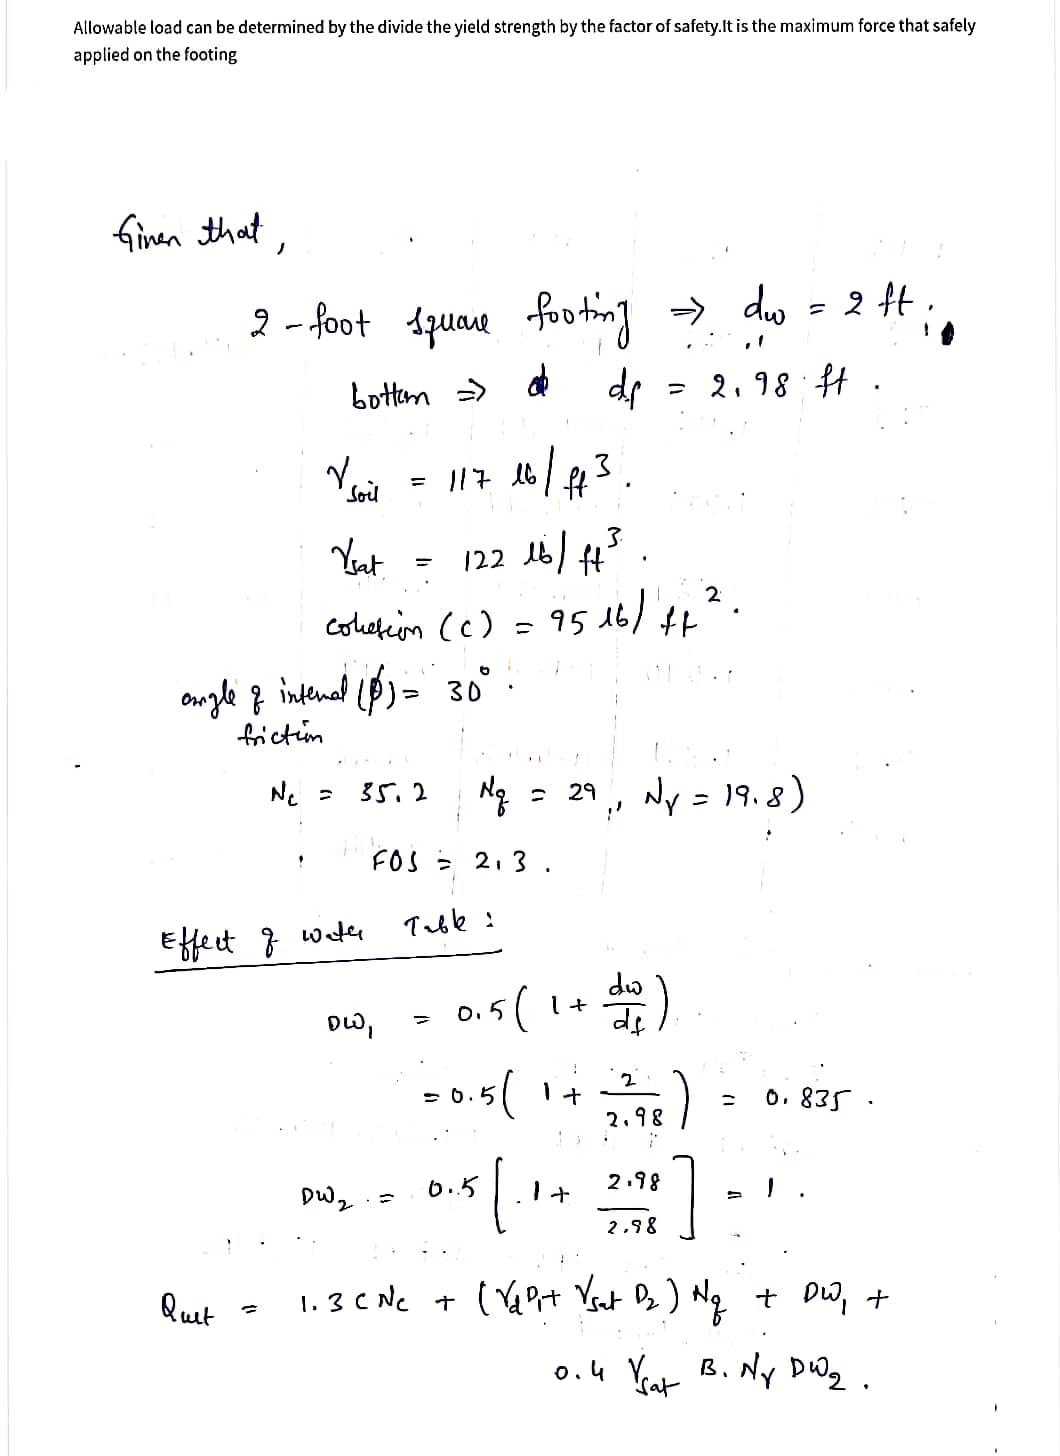 Allowable load can be determined by the divide the yield strength by the factor of safety.It is the maximum force that safely
applied on the footing
Given that,
2 - foot square footing ⇒ dw = 2 ft ;
bottom ⇒ df = 2.98 ft .
γsoil = 117 lb/ft³ .
γsat = 122 lb/ft³ .
cohesion (c) = 95 lb/ft² .
angle of internal (φ) = 30° .
friction
Nc = 35.2 Nq = 29 , Nγ = 19.8)
FOS = 2.3 .
Effect of water Table :
DW₁ = 0.5 ( 1 + dw/df )
= 0.5 ( 1 + 2/2.98 ) = 0.835 .
DW₂ = 0.5 [ 1 + 2.98/2.98 ] = 1 .
Qult = 1.3 C Nc + ( γd D₁ + γsat D₂ ) Nq + DW₁ +
0.4 γsat B. Nγ DW₂ .